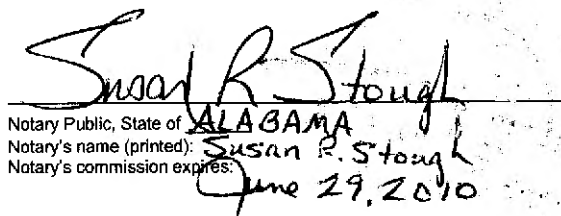 Susan R Stough
Notary Public, State of ALABAMA
Notary's name (printed): Susan R. Stough
Notary's commission expires:
June 29, 2010